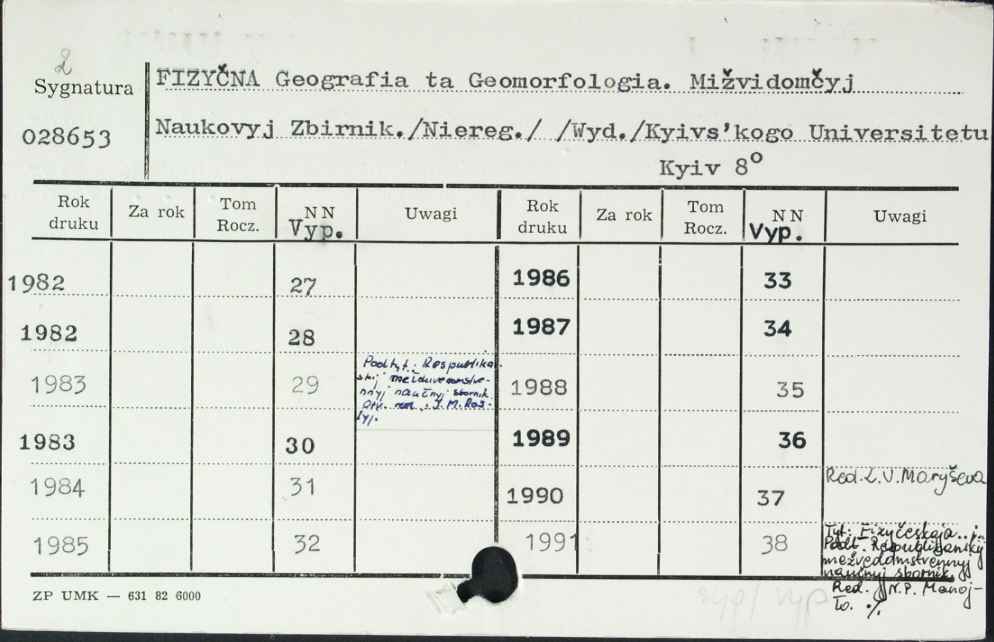 2
Sygnatura
028653
FIZYČNA Geografia ta Geomorfologia. Mižvidomčyj
Naukovyj Zbirnik./Niereg./ /Wyd./Kyivs'kogo Universitetu
Kyiv 8°
Rok druku Za rok Tom Rocz. NN Vyp. Uwagi Rok druku Za rok Tom Rocz. NN Vyp. Uwagi
1982 27 1986 33
1982 28 1987 34
1983 29 1988 35
Podtyt.: Respublikan-
skij mežduvedomstve-
nnyj naučnyj sbornik
Otv. red. : J.M. Ros-
lyj.
1983 30 1989 36
1984 31 1990 37
Red. L.V. Maryševa
1985 32 1991 38
Tyt: Fizyčeskaja..i.
Podt. Republikanskij
mežvedomstvennyj
naučnyj sbornik
Red. N.P. Manoj-
ło. %
ZP UMK — 631 82 6000